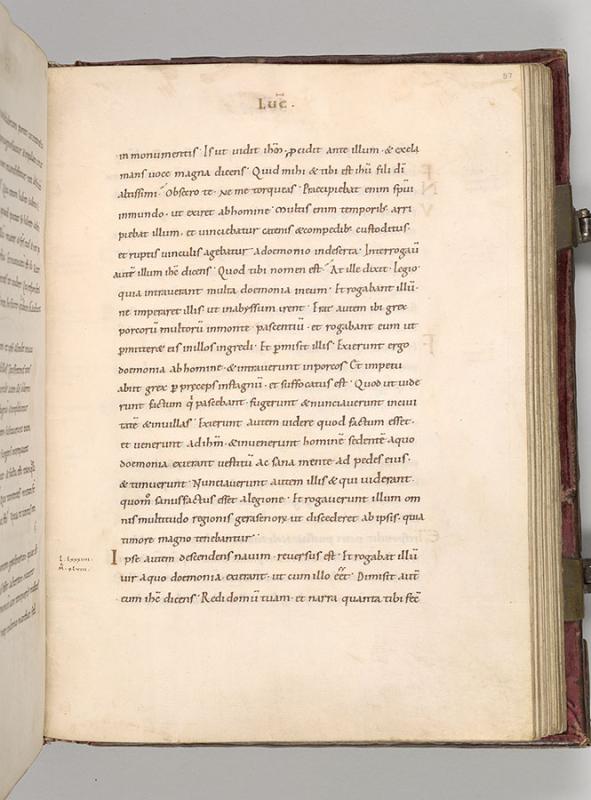 97
Luc̄.
in monumentis. Is ut vidit ihm̄. p̱cidit ante illum. & excla
mans voce magna dicens. Quid mihi & tibi est ihū fili dī
altissimi. Obsecro te. Ne me torqueas. Praecipiebat enim sp̄ui
inmundo. ut exiret abhomine. Multis enim temporib; arri
piebat illum. et vinciebatur catenis & compedib; custoditus.
et ruptis vinculis agebatur. a doemonio indeserta. Interrogaū
autē illum ihc̄ dicens. Quod tibi nomen est. At ille dixit. Legio.
quia intraverant multa doemonia ineum. Et rogabant illū.
ne imperaret illis. ut inabyssum irent. Erat autem ibi grex
porcorū multorū inmonte pascentiū. et rogabant eum ut
p̱mitteret eis inillos ingredi. Et p̱misit illis. Exierunt ergo
doemonia ab homine. & intraverunt inporcos. Et impetu
abiit grex p̱ pręceps instagnū. et suffocatus est. Quod ut vide
runt factum q̄ pascebant. fugerunt & nunciaverunt incivi
tatē & invillas. Exierunt autem videre quod factum esset.
et venerunt adihm̄. & invenerunt hominē sedentē aquo
doemonia exierant vestitū ac sana mente ad pedes eius.
& timuerunt. Nunciaverunt autem illis & qui viderant.
quom̄ sanusfactus esset alegione. Et rogaverunt illum om
nis multitudo regionis gerasenorv̄. ut discederet ab ipsis. quia
timore magno tenebantur.
Ipse autem descendens navim. reversus est. Et rogabat illū
vir aquo doemonia exierant. ut cum illo eēt. Dimisit autē
eum ihc̄ dicens. Redi domū tuam. et narra quanta tibi fec̄